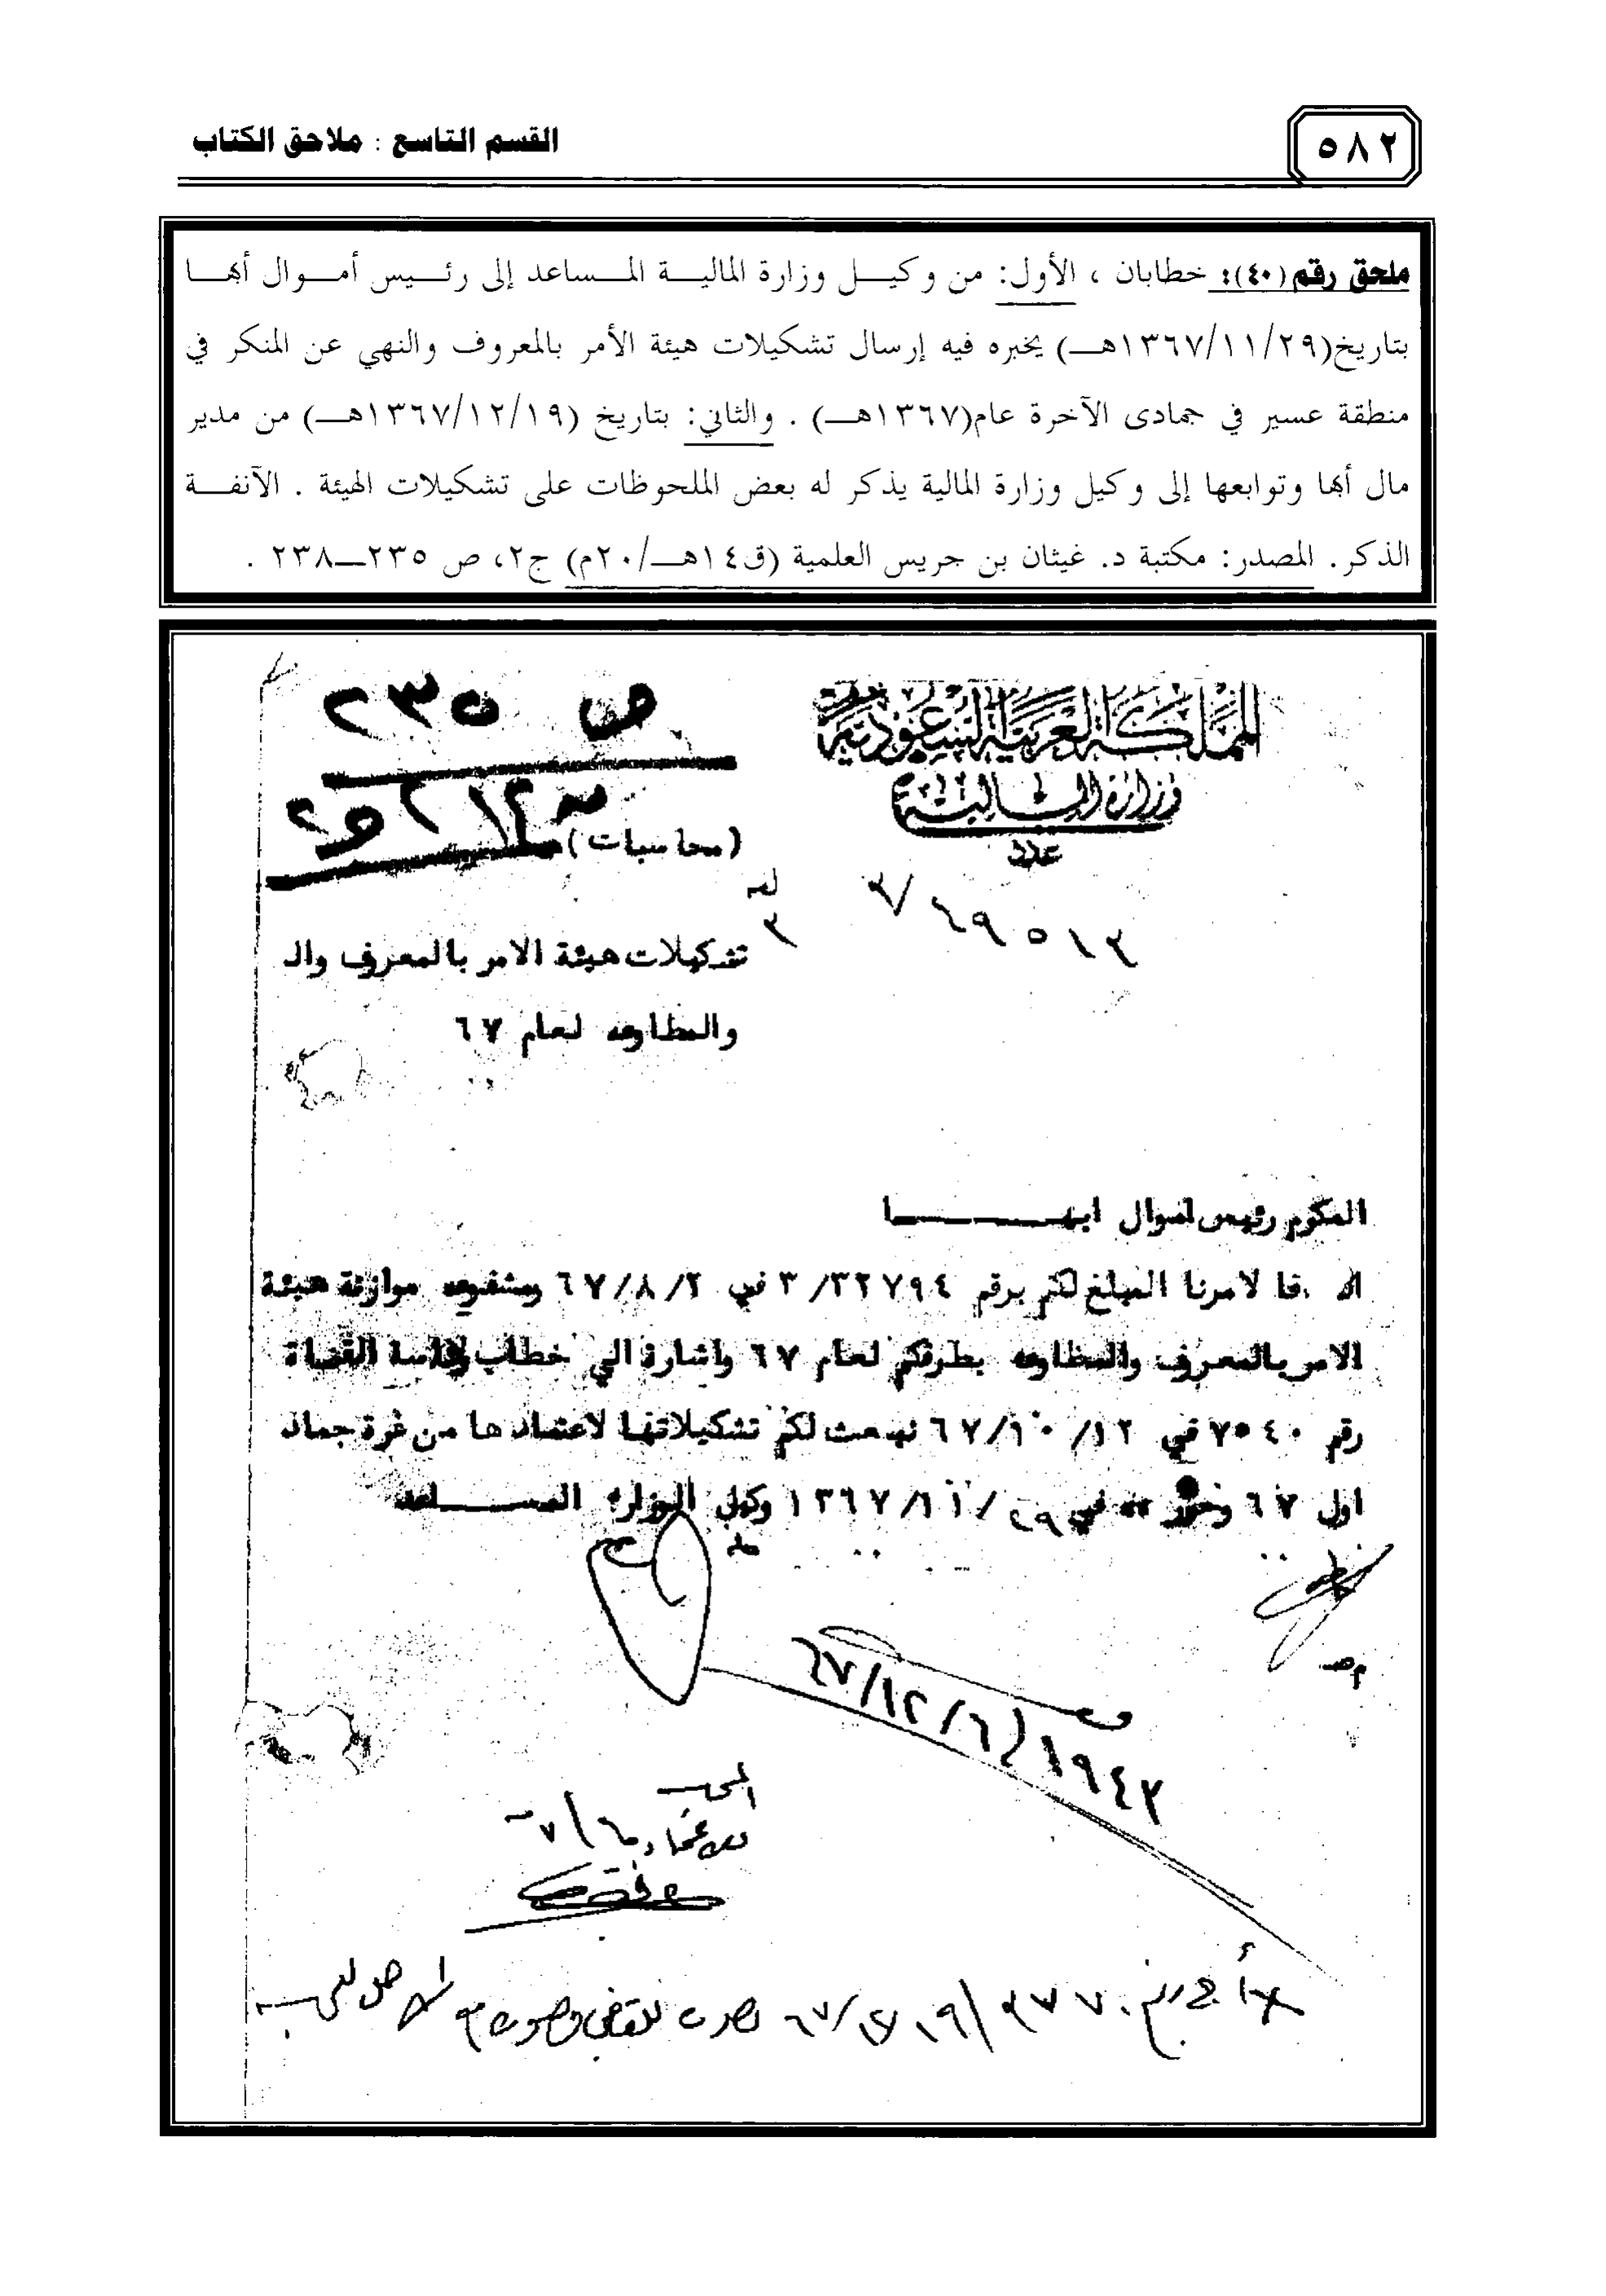 ٥٨٢
القسم التاسع : ملاحق الكتاب
ملحق رقم (٤٠): خطابان ، الأول: من وكيل وزارة المالية المساعد إلى رئيس أموال أبها
بتاريخ(١٣٦٧/١١/٢٩هـ) يخبره فيه إرسال تشكيلات هيئة الأمر بالمعروف والنهي عن المنكر في
منطقة عسير في جمادى الآخرة عام(١٣٦٧هـ) . والثاني: بتاريخ (١٣٦٧/١٢/١٩هـ) من مدير
مال أبها وتوابعها إلى وكيل وزارة المالية يذكر له بعض الملحوظات على تشكيلات الهيئة . الآنفة
الذكر. المصدر: مكتبة د. غيثان بن جريس العلمية (ق١٤هـ/٢٠م) ج٢، ص ٢٣٥_٢٣٨ .
ص ٢٣٥
المملكة العربية السعودية
وزارة المالية
عدد
(محاسبات)
تشكيلات هيئة الامر بالمعروف وال
والمطاوعه لعام ٦٧
المكرم رئيس اموال ابهــا
لامرنا المبلغ لكم برقم ٣/٣٢٧٩٤ في ٦٧/٨/٢ ومشفوعه موازنة هيئة
الامر بالمعروف والمطاوعه بطرفكم لعام ٦٧ واشارة الي خطاب رئاسة القضاة
رقم ٧٥٤٠ في ٦٧/١٠/١٢ نبعث لكم تشكيلاتها لاعتمادها من غرة جماد
اول ٦٧ في ١٣٦٧/١١/٢٩ وكيل الوزارة المســاعد
١٩٤٢/٦/١٢/٦٧